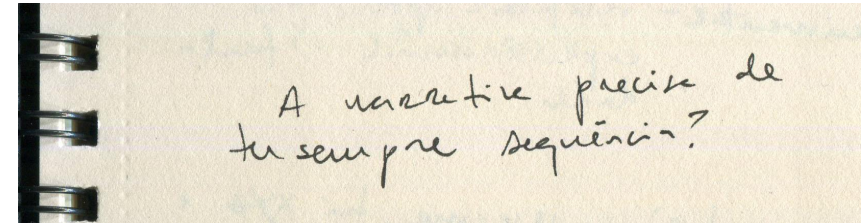 A narrativa precisa de
ter sempre sequência?